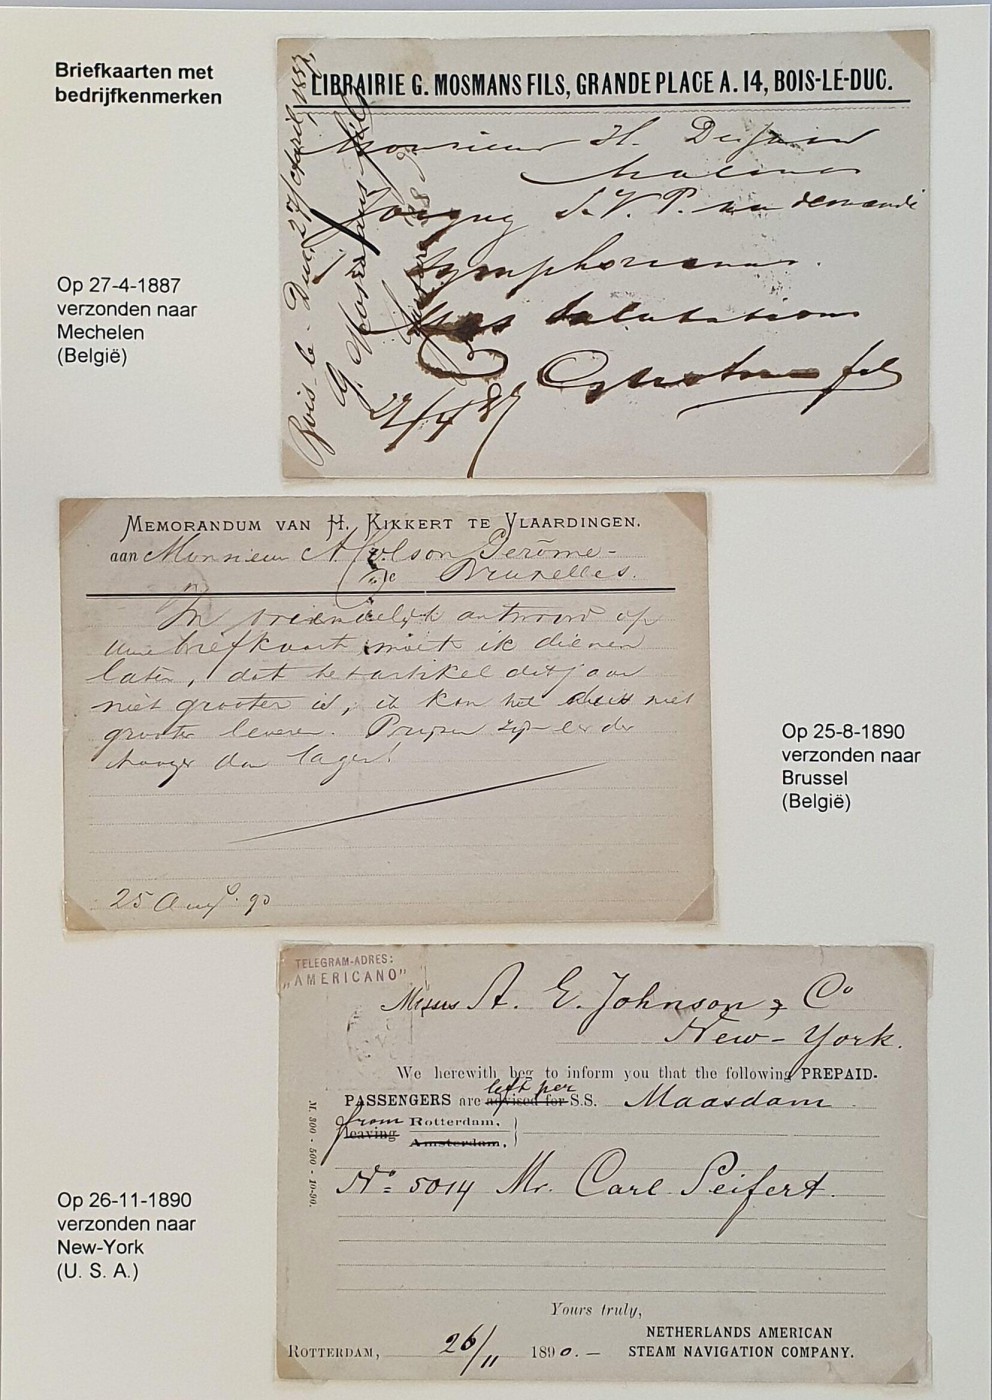 Briefkaarten met
bedrijfkenmerken
LIBRAIRIE G. MOSMANS FILS, GRANDE PLACE A. 14, BOIS-LE-DUC.
Monsieur H. Dessain
Malines
S.V.P. demande
Symphorianus.
Mes Salutations
fils
27/4 87
Bois-le-Duc, 27 April 1887
G. Mosmans fils
Op 27-4-1887
verzonden naar
Mechelen
(België)
MEMORANDUM VAN H. KIKKERT TE VLAARDINGEN.
aan Monsieur Gerôme-
Bruxelles.
In vriendelijk antwoord op
uwe briefkaart, moet ik dienen
laten, dat het artikel dit jaar
niet grooter is, ik kan het niet
grooter leveren. Prijzen zijn eerder
hooger dan lager!
25 Aug. 90
Op 25-8-1890
verzonden naar
Brussel
(België)
TELEGRAM-ADRES:
"AMERICANO"
Messrs A. E. Johnson & Co
New-York.
We herewith beg to inform you that the following PREPAID-
left per
PASSENGERS are advised for S.S. Maasdam
from
leaving Rotterdam,
Amsterdam,
M. 300 - 500 - 10-90.
No 5014 Mr. Carl Seifert.
Yours truly,
NETHERLANDS AMERICAN
STEAM NAVIGATION COMPANY.
ROTTERDAM, 26/11 1890.-
Op 26-11-1890
verzonden naar
New-York
(U. S. A.)